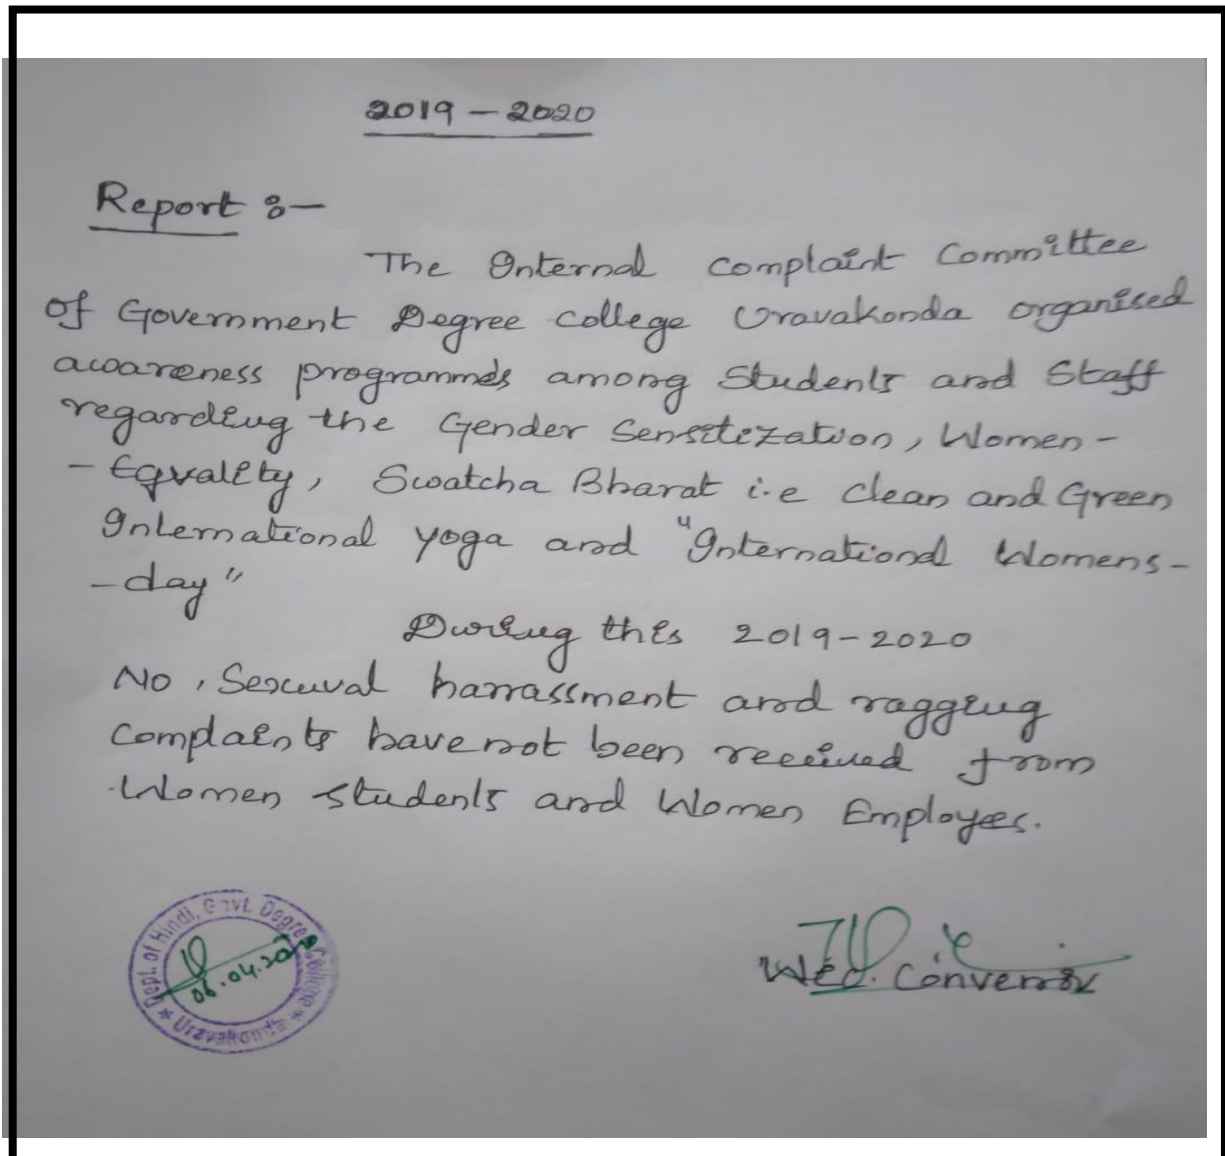 2019 - 2020
Report :-
The Internal complaint Committee
of Government Degree college Uravakonda organised
awareness programmes among Students and Staff
regarding the Gender Sensitization, Women -
- Equality, Swatcha Bharat i.e clean and Green
International yoga and "International Womens -
- day"
During this 2019-2020
No, Sexuval harrassment and ragging
complaints have not been received from
Women students and Women Employees.
Dept. of Hindi, Govt. Degree College
* Uravakonda *
06.04.2020
WEC. Convenor